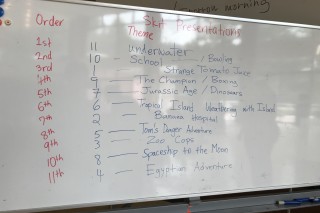 morning
Order Skit Presentations
Theme
1st 11 Underwater
2nd 10 — School / Bowling
3rd 1 — Strange Tomato Juice
4th 9 — The Champion / Boxing
5th 7 — Jurassic Age / Dinosaurs
6th 6 — Tropical Island with Island
7th 2 — Banana Hospital
8th 5 — Tom's Danger Adventure
9th 3 — Zoo Cops
10th 8 — Spaceship to the Moon
11th 4 — Egyptian Adventure